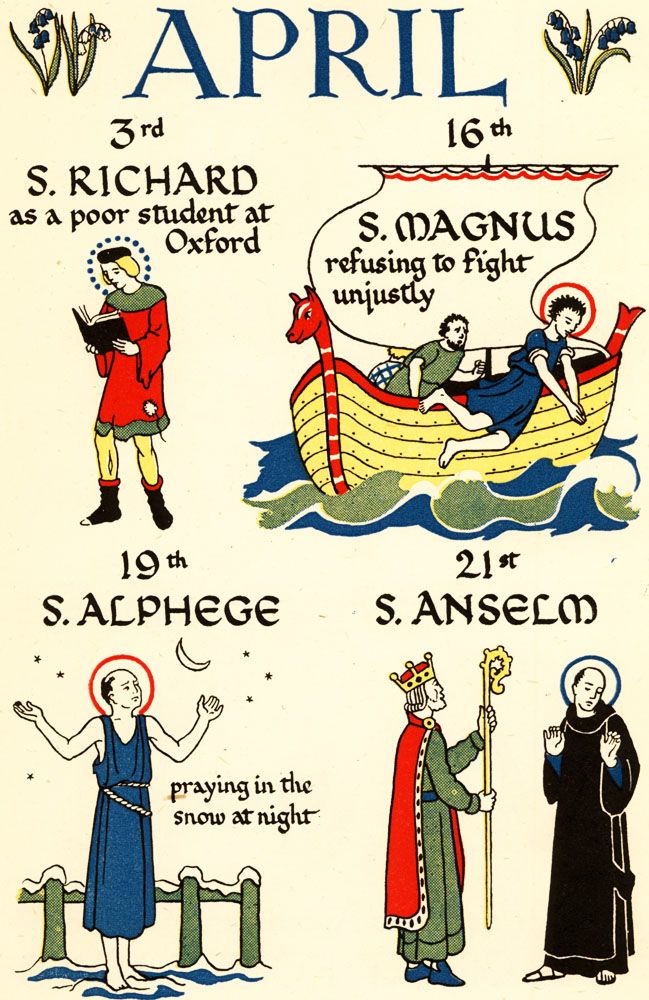 APRIL
3rd
S. RICHARD
as a poor student at
Oxford
16th
S. MAGNUS
refusing to fight
unjustly
19th
S. ALPHEGE
praying in the
snow at night
21st
S. ANSELM